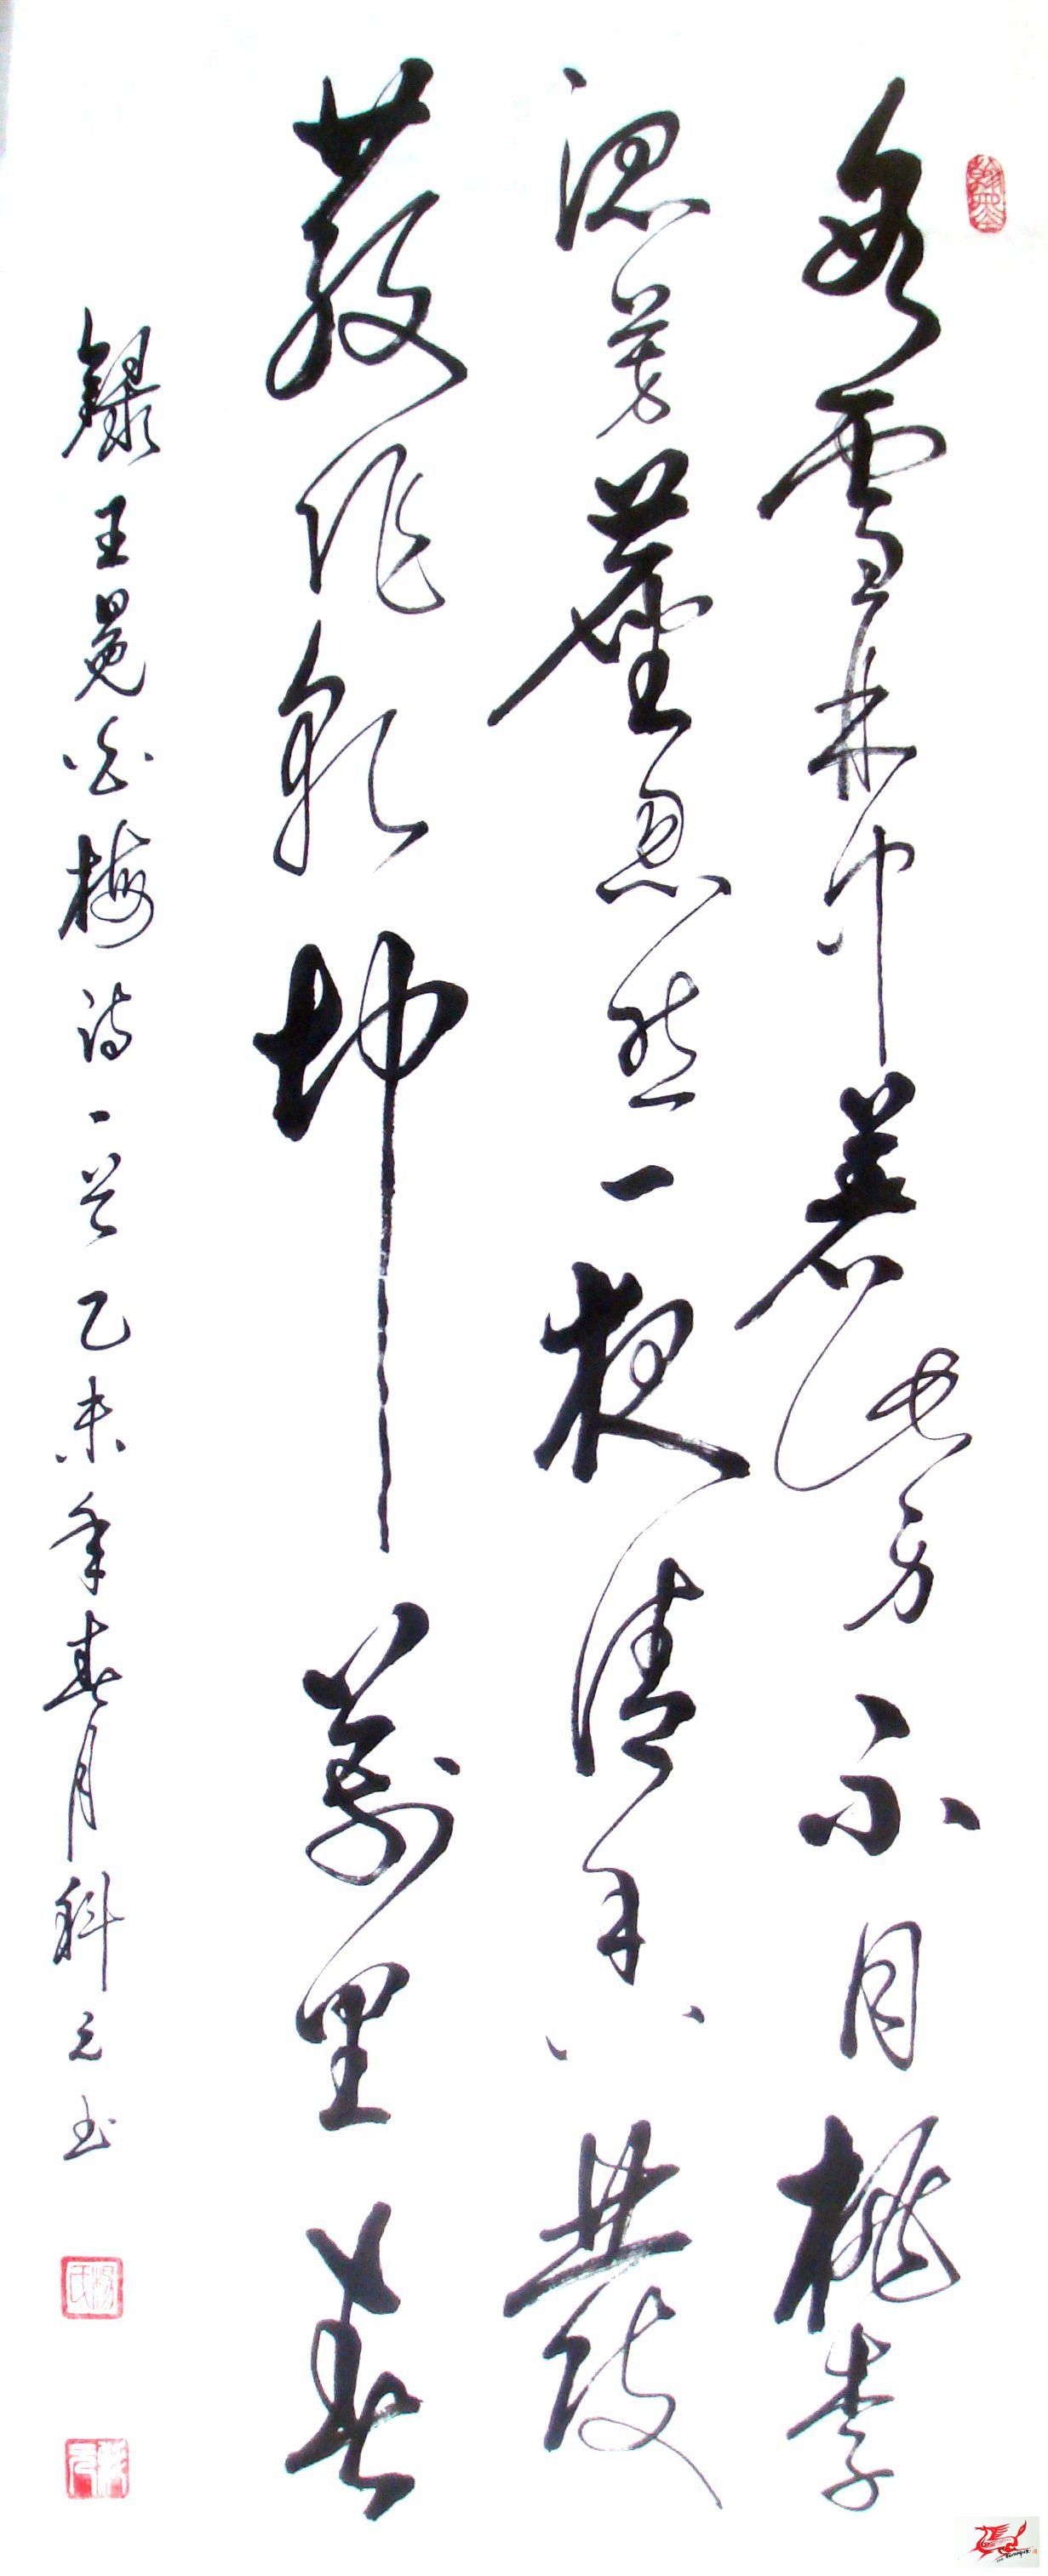 冰雪林中著此身不同桃李
混芳塵忽然一夜清香發
散作乾坤萬里春
錄王冕白梅詩一首乙未年春月科元书
翰墨